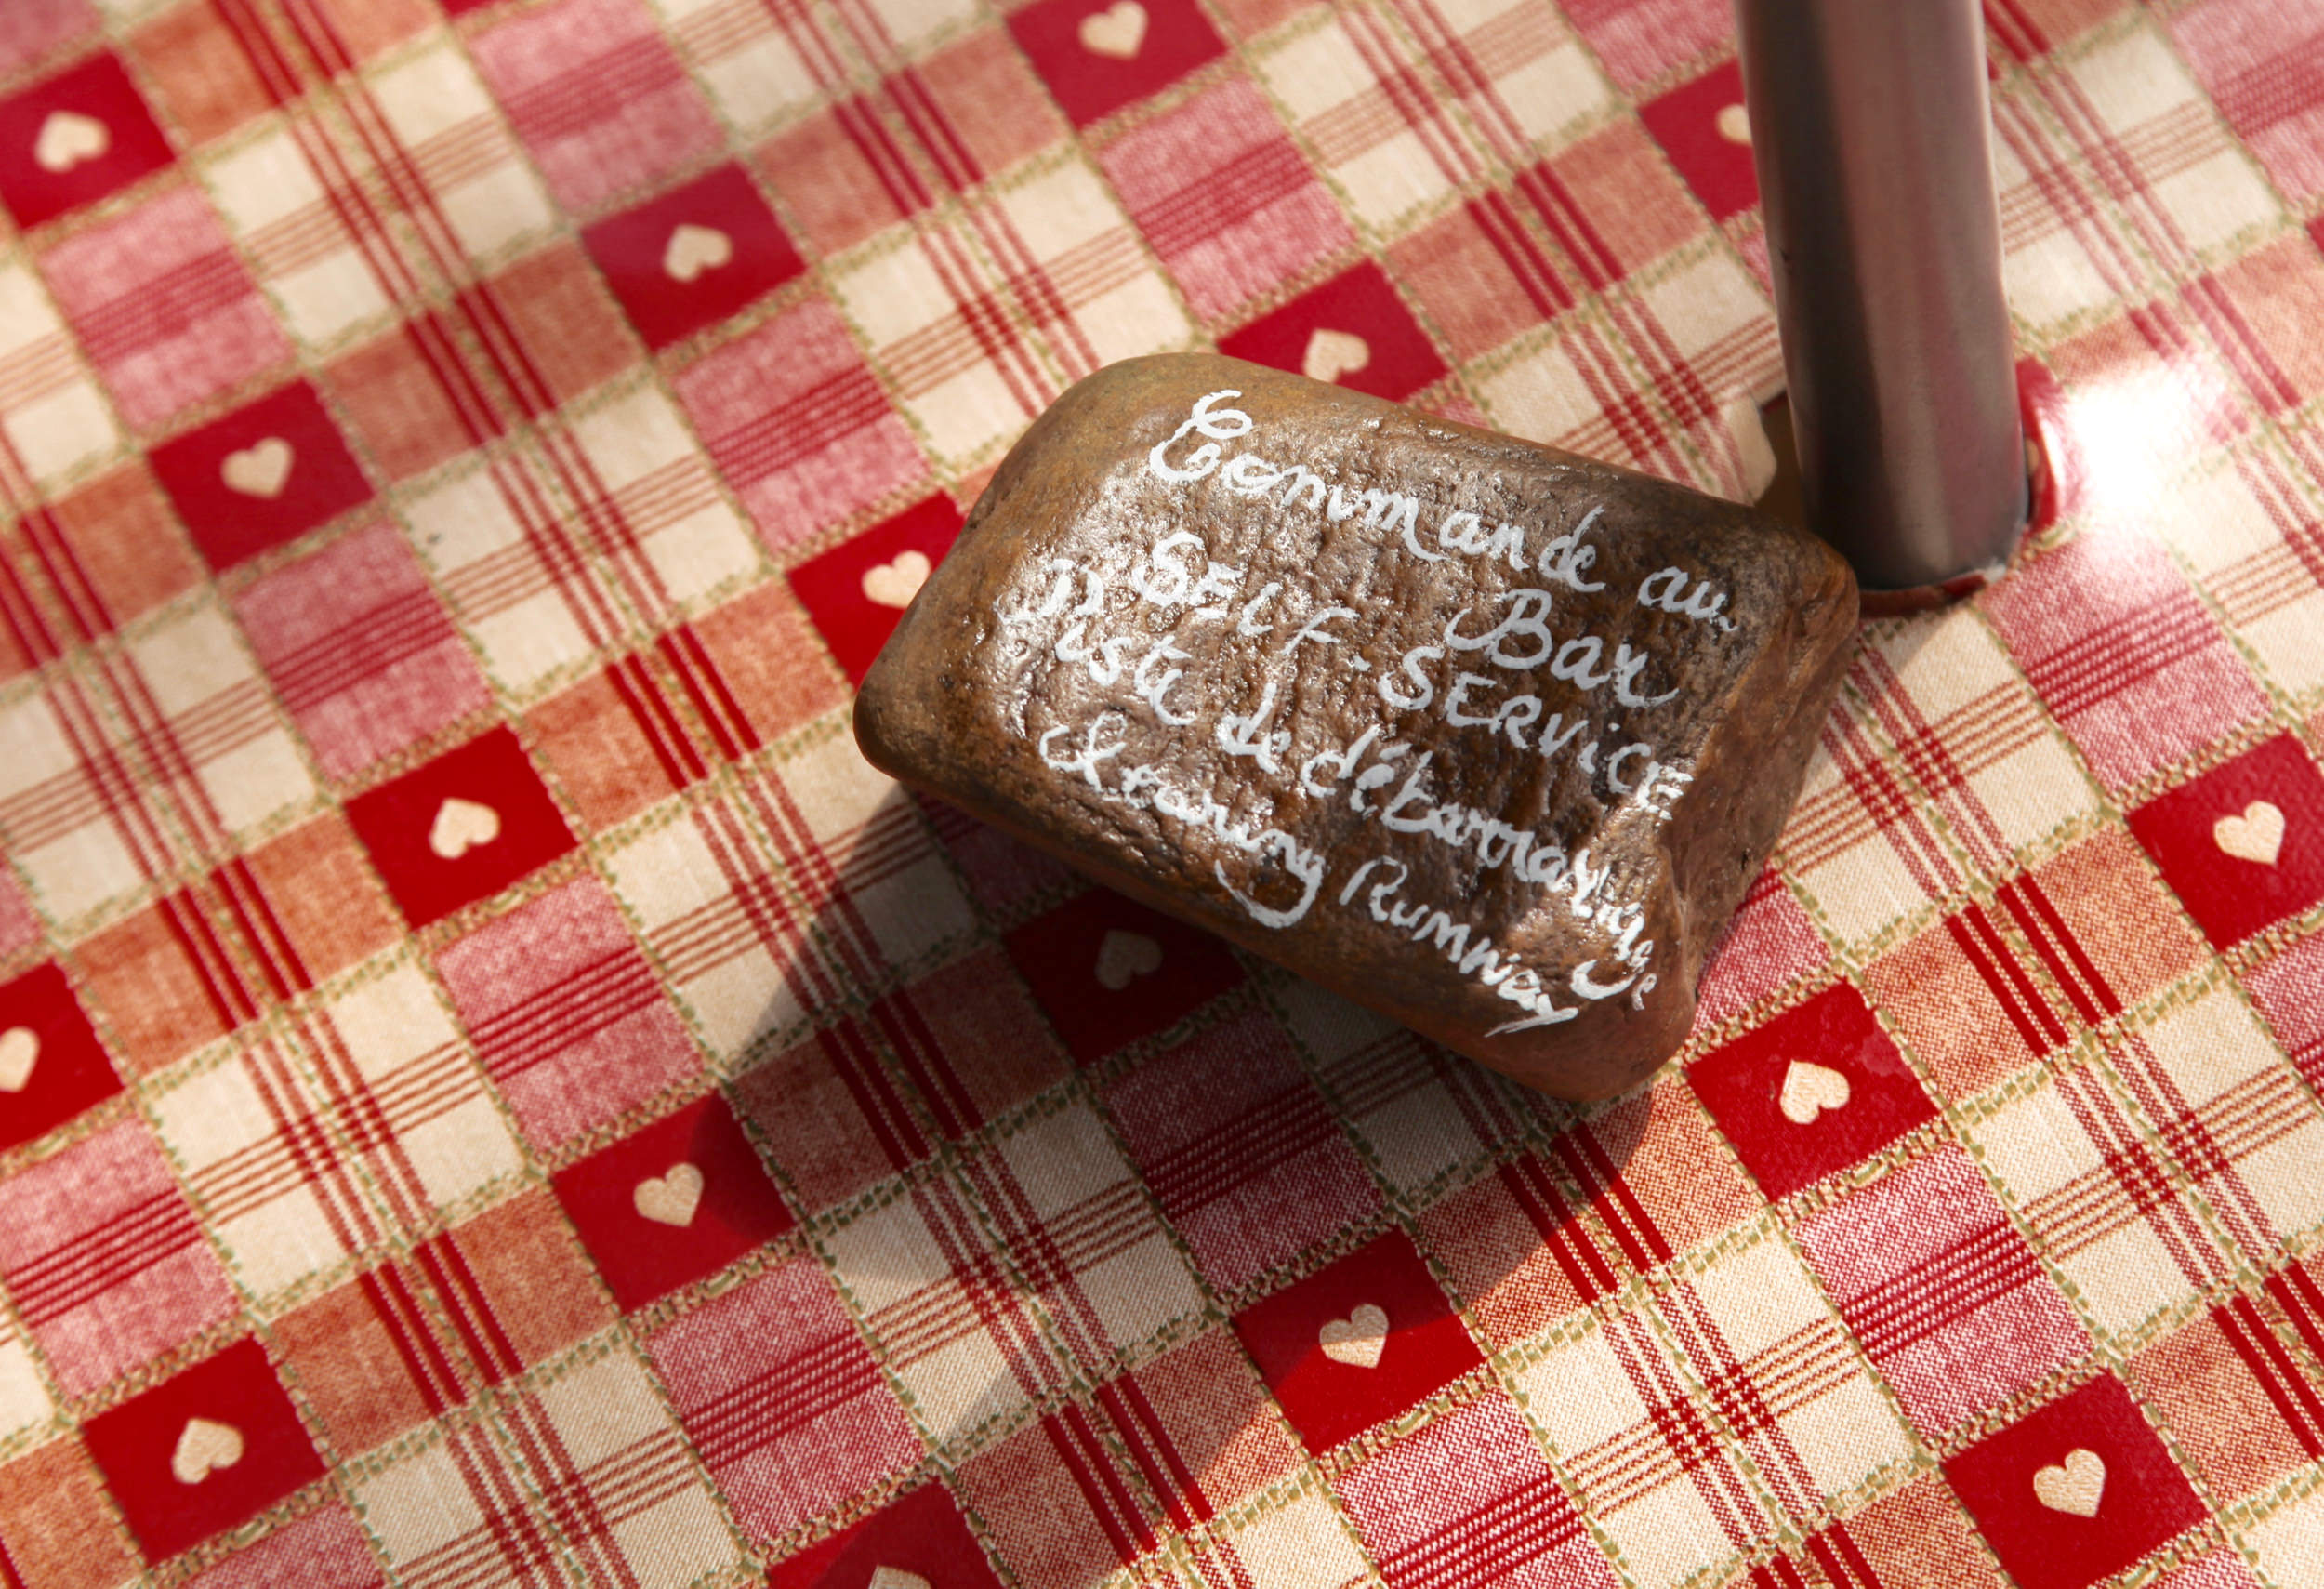 Commande au
Bar
SELF-SERVICE
Piste de débarrassage
Clearing Rumway